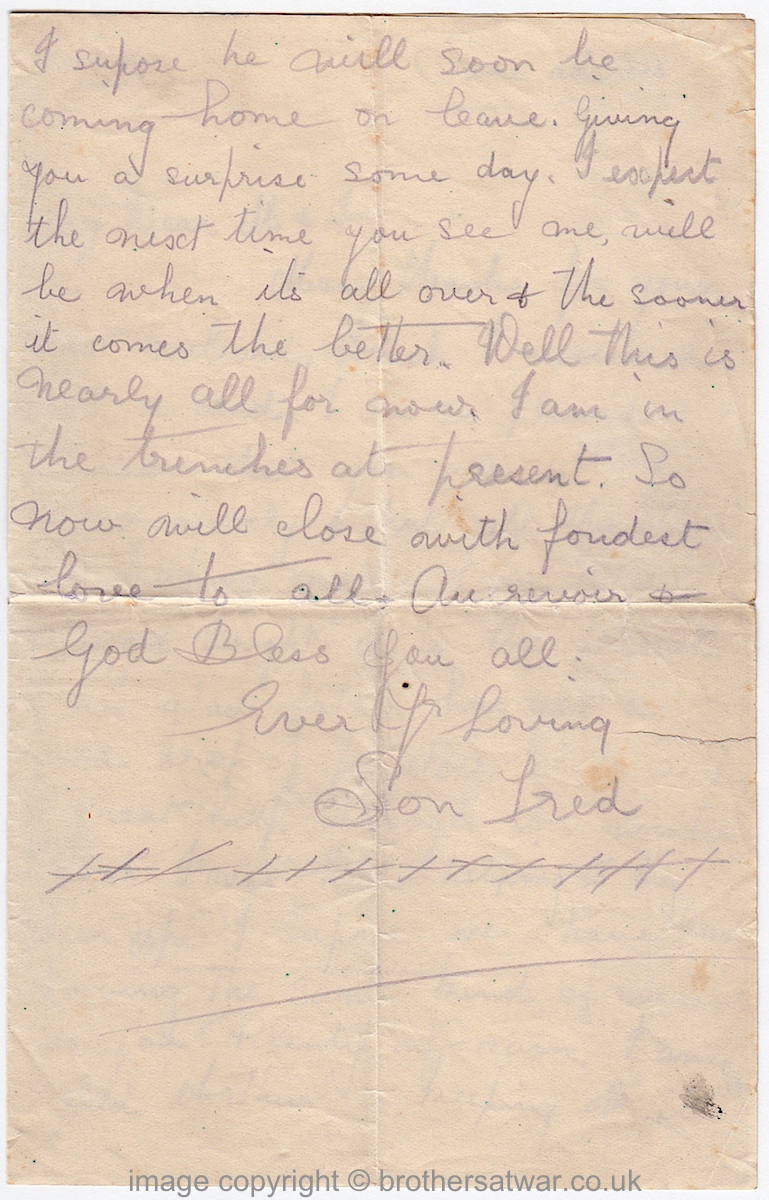 I supose he will soon be
coming home on leave. Giving
you a surprise some day. I expect
the next time you see me, will
be when its all over & the sooner
it comes the better. Well this is
nearly all for now. I am in
the trenches at present. So
now will close with fondest
love to all. Au revoir &
God Bless you all.
Ever Yr Loving
Son Fred
image copyright © brothersatwar.co.uk